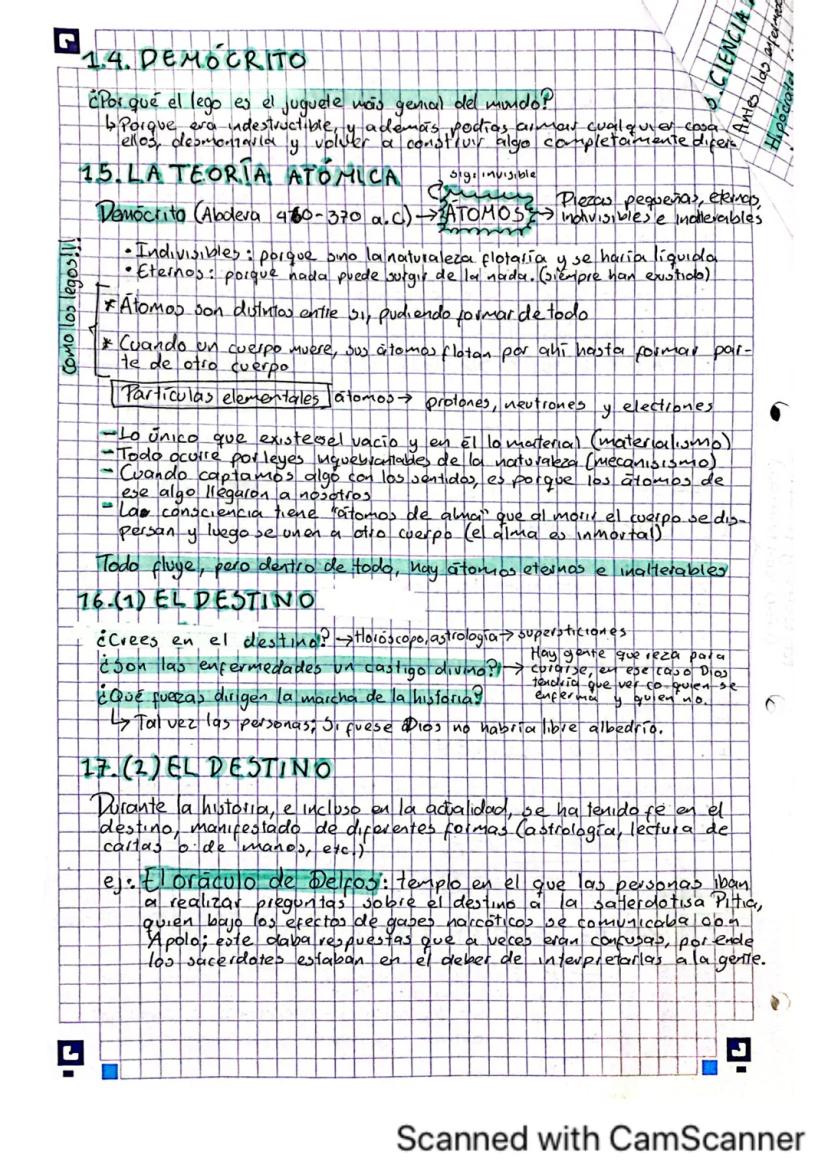 14. DEMÓCRITO
¿Por qué el lego es el juguete más genial del mundo?
↳ Porque era indestructible, y además podías armar cualquier cosa
ellos, desmontarla y volver a construir algo completamente difere
15. LA TEORÍA ATÓMICA
sig: invisible
Demócrito (Abdera 460-370 a.c) → ÁTOMOS → Piezas pequeñas, eternas,
indivisibles e inalterables
• Indivisibles: porque sino la naturaleza flotaría y se haría líquida
• Eternos: porque nada puede surgir de la nada. (siempre han existido)
como los legos!!!
* Átomos son distintos entre si, pudiendo formar de todo
* Cuando un cuerpo muere, sus átomos flotan por ahí hasta formar par-
te de otro cuerpo
Partículas elementales átomos → protones, neutrones y electrones
- Lo único que existe es el vacío y en él lo material (materialismo)
- Todo ocurre por leyes inquebrantables de la naturaleza (mecanisismo)
- Cuando captamos algo con los sentidos, es porque los átomos de
ese algo llegaron a nosotros
- La consciencia tiene "átomos de alma" que al morir el cuerpo se dis-
persan y luego se unen a otro cuerpo (el alma es inmortal)
Todo fluye, pero dentro de todo, hay átomos eternos e inalterables
16. (1) EL DESTINO
¿Crees en el destino? → Horóscopo, astrología → supersticiones
¿Son las enfermedades un castigo divino? → Hay gente que reza para
curarse, en ese caso Dios
tendría que ver co quien se
enferma y quien no.
¿Qué fuerzas dirigen la marcha de la historia?
↳ Tal vez las personas; Si fuese Dios no habría libre albedrío.
17. (2) EL DESTINO
Durante la historia, e incluso en la actialidad, se ha tenido fe en el
destino, manifestado de diferentes formas (astrología, lectura de
cartas o de manos, etc.)
ej: El oráculo de Delfos: templo en el que las personas iban
a realizar preguntas sobre el destino a la sacerdotisa Pitia,
quien bajo los efectos de gases narcóticos se comunicaba con
Apolo; este daba respuestas que a veces eran confusas, por ende
los sacerdotes estaban en el deber de interpretarlas a la gente.
CIENCIA
Antes las enfermed
Hipócrates
Scanned with CamScanner